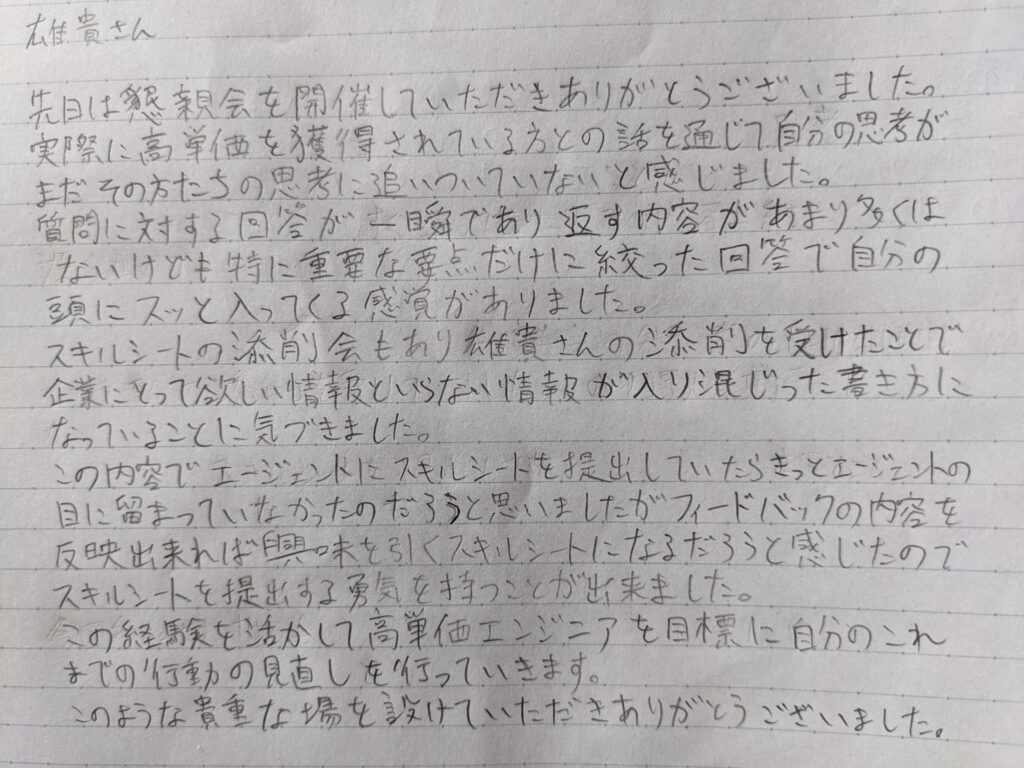 雄貴さん
先日は懇親会を開催していただきありがとうございました。
実際に高単価を獲得されている方との話を通じて自分の思考が
まだその方たちの思考に追いついていないと感じました。
質問に対する回答が一瞬であり返す内容があまり多くは
ないけども特に重要な要点だけに絞った回答で自分の
頭にスッと入ってくる感覚がありました。
スキルシートの添削会もあり雄貴さんの添削を受けたことで
企業にとって欲しい情報といらない情報が入り混じった書き方に
なっていることに気づきました。
この内容でエージェントにスキルシートを提出していたらきっとエージェントの
目に留まっていなかったのだろうと思いましたがフィードバックの内容を
反映出来れば興味を引くスキルシートになるだろうと感じたので
スキルシートを提出する勇気を持つことが出来ました。
この経験を活かして高単価エンジニアを目標に自分のこれ
までの行動の見直しを行っていきます。
このような貴重な場を設けていただきありがとうございました。